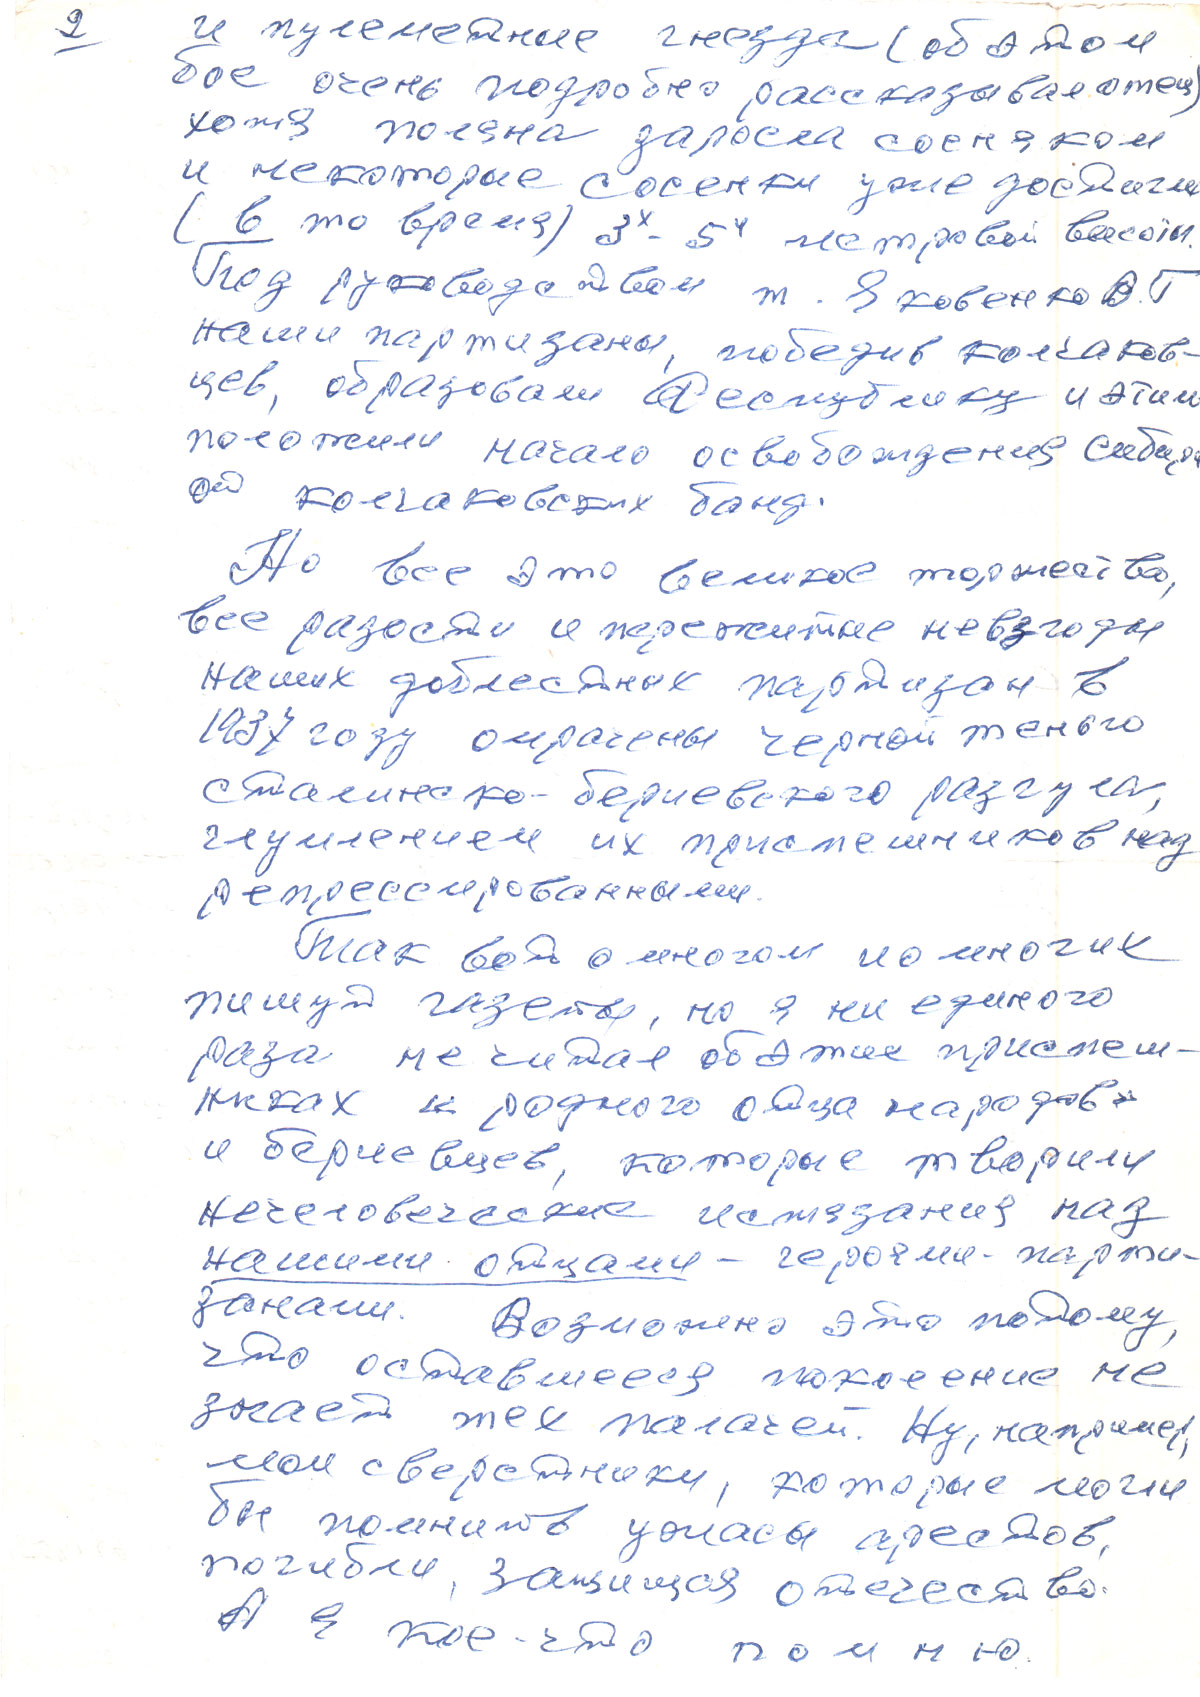 2
и пулеметные гнезда (об этом
бое очень подробно рассказывал отец)
хотя поляна заросла сосняком
и некоторые сосенки уже достигли
(в то время) 3х - 5и метровой высоты.
Под руководством т. Яковенко В.Г
наши партизаны, победив колчаков-
цев, образовали Республику и этим
положили начало освобождения Сибири
от колчаковских банд.
Но все это великое торжество,
все радости и пережитые невзгоды
наших доблестных партизан в
1937 году омрачены черной тенью
сталинско-бериевского разгула,
глумлением их приспешников над
репрессированными.
Так вот о многом и о многих
пишут газеты, но я ни единого
раза не читал об этих приспеш-
никах родного отца народов
и бериевцев, которые творили
нечеловеческие истязания над
нашими отцами - героями - парти-
занами. Возможно это потому,
что оставшееся поколение не
знает тех палачей. Ну, например,
мои сверстники, которые могли
бы помнить ужасы арестов,
погибли, защищая отечество.
А я кое-что помню.